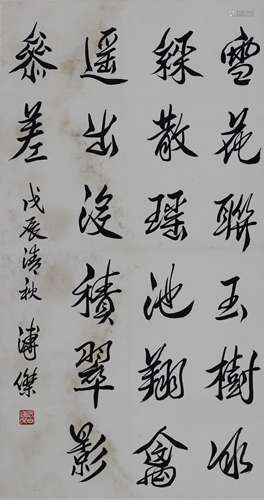 雪花聯玉樹冰
綵散瑤池翔禽
遙出沒積翠影
參差
戊辰清秋 溥傑